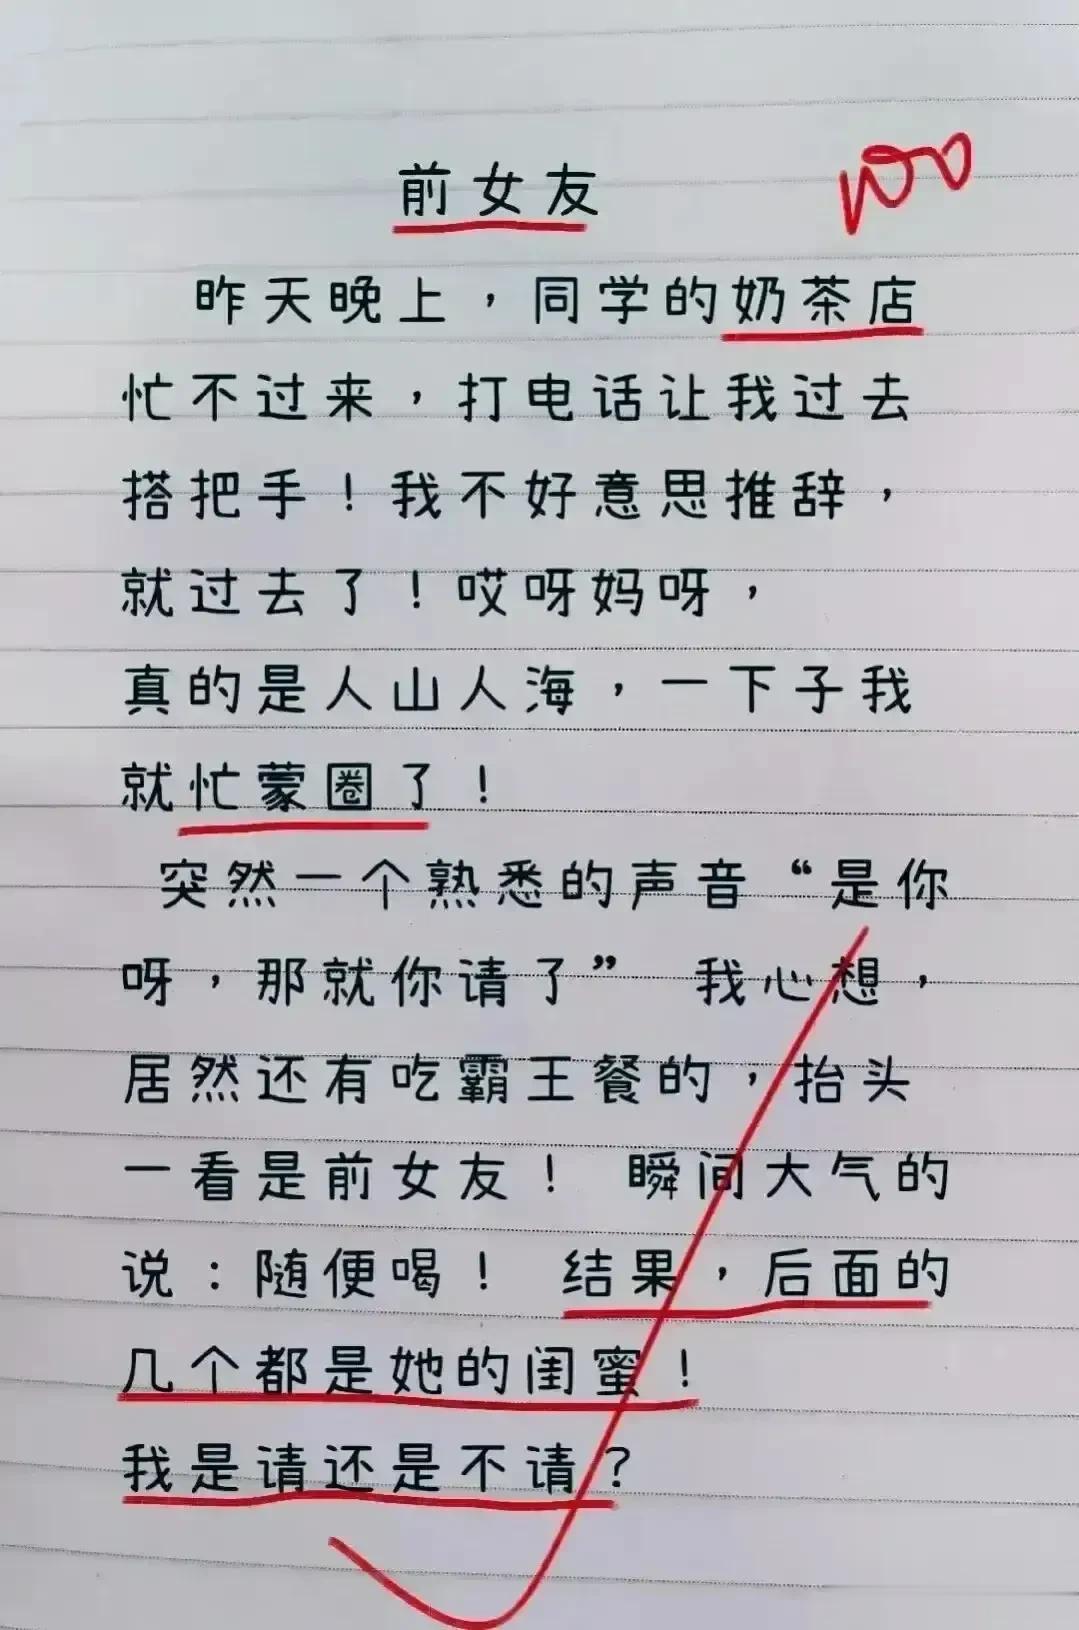 前女友
100
昨天晚上，同学的奶茶店
忙不过来，打电话让我过去
搭把手！我不好意思推辞，
就过去了！哎呀妈呀，
真的是人山人海，一下子我
就忙蒙圈了！
突然一个熟悉的声音“是你
呀，那就你请了” 我心想，
居然还有吃霸王餐的，抬头
一看是前女友！ 瞬间大气的
说：随便喝！ 结果，后面的
几个都是她的闺蜜！
我是请还是不请？